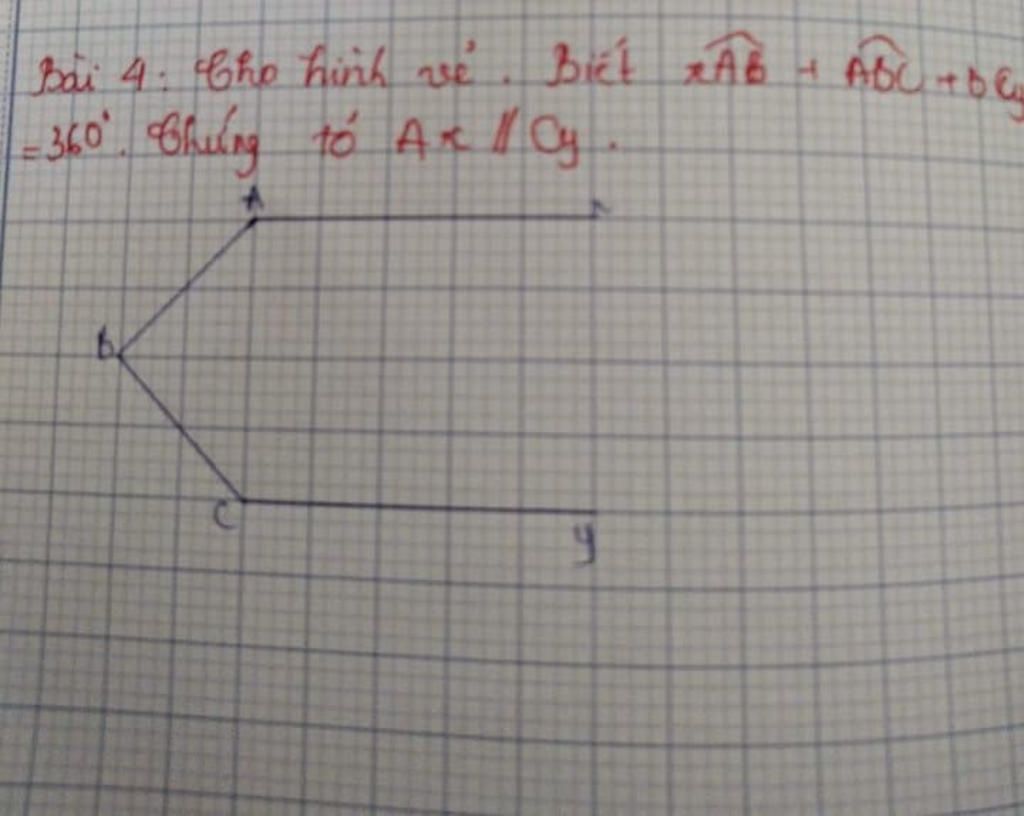 Bài 4: Cho hình vẽ. Biết xAB + ABC + BCy
= 360°. Chứng tỏ Ax // Cy.
A
x
B
C
y